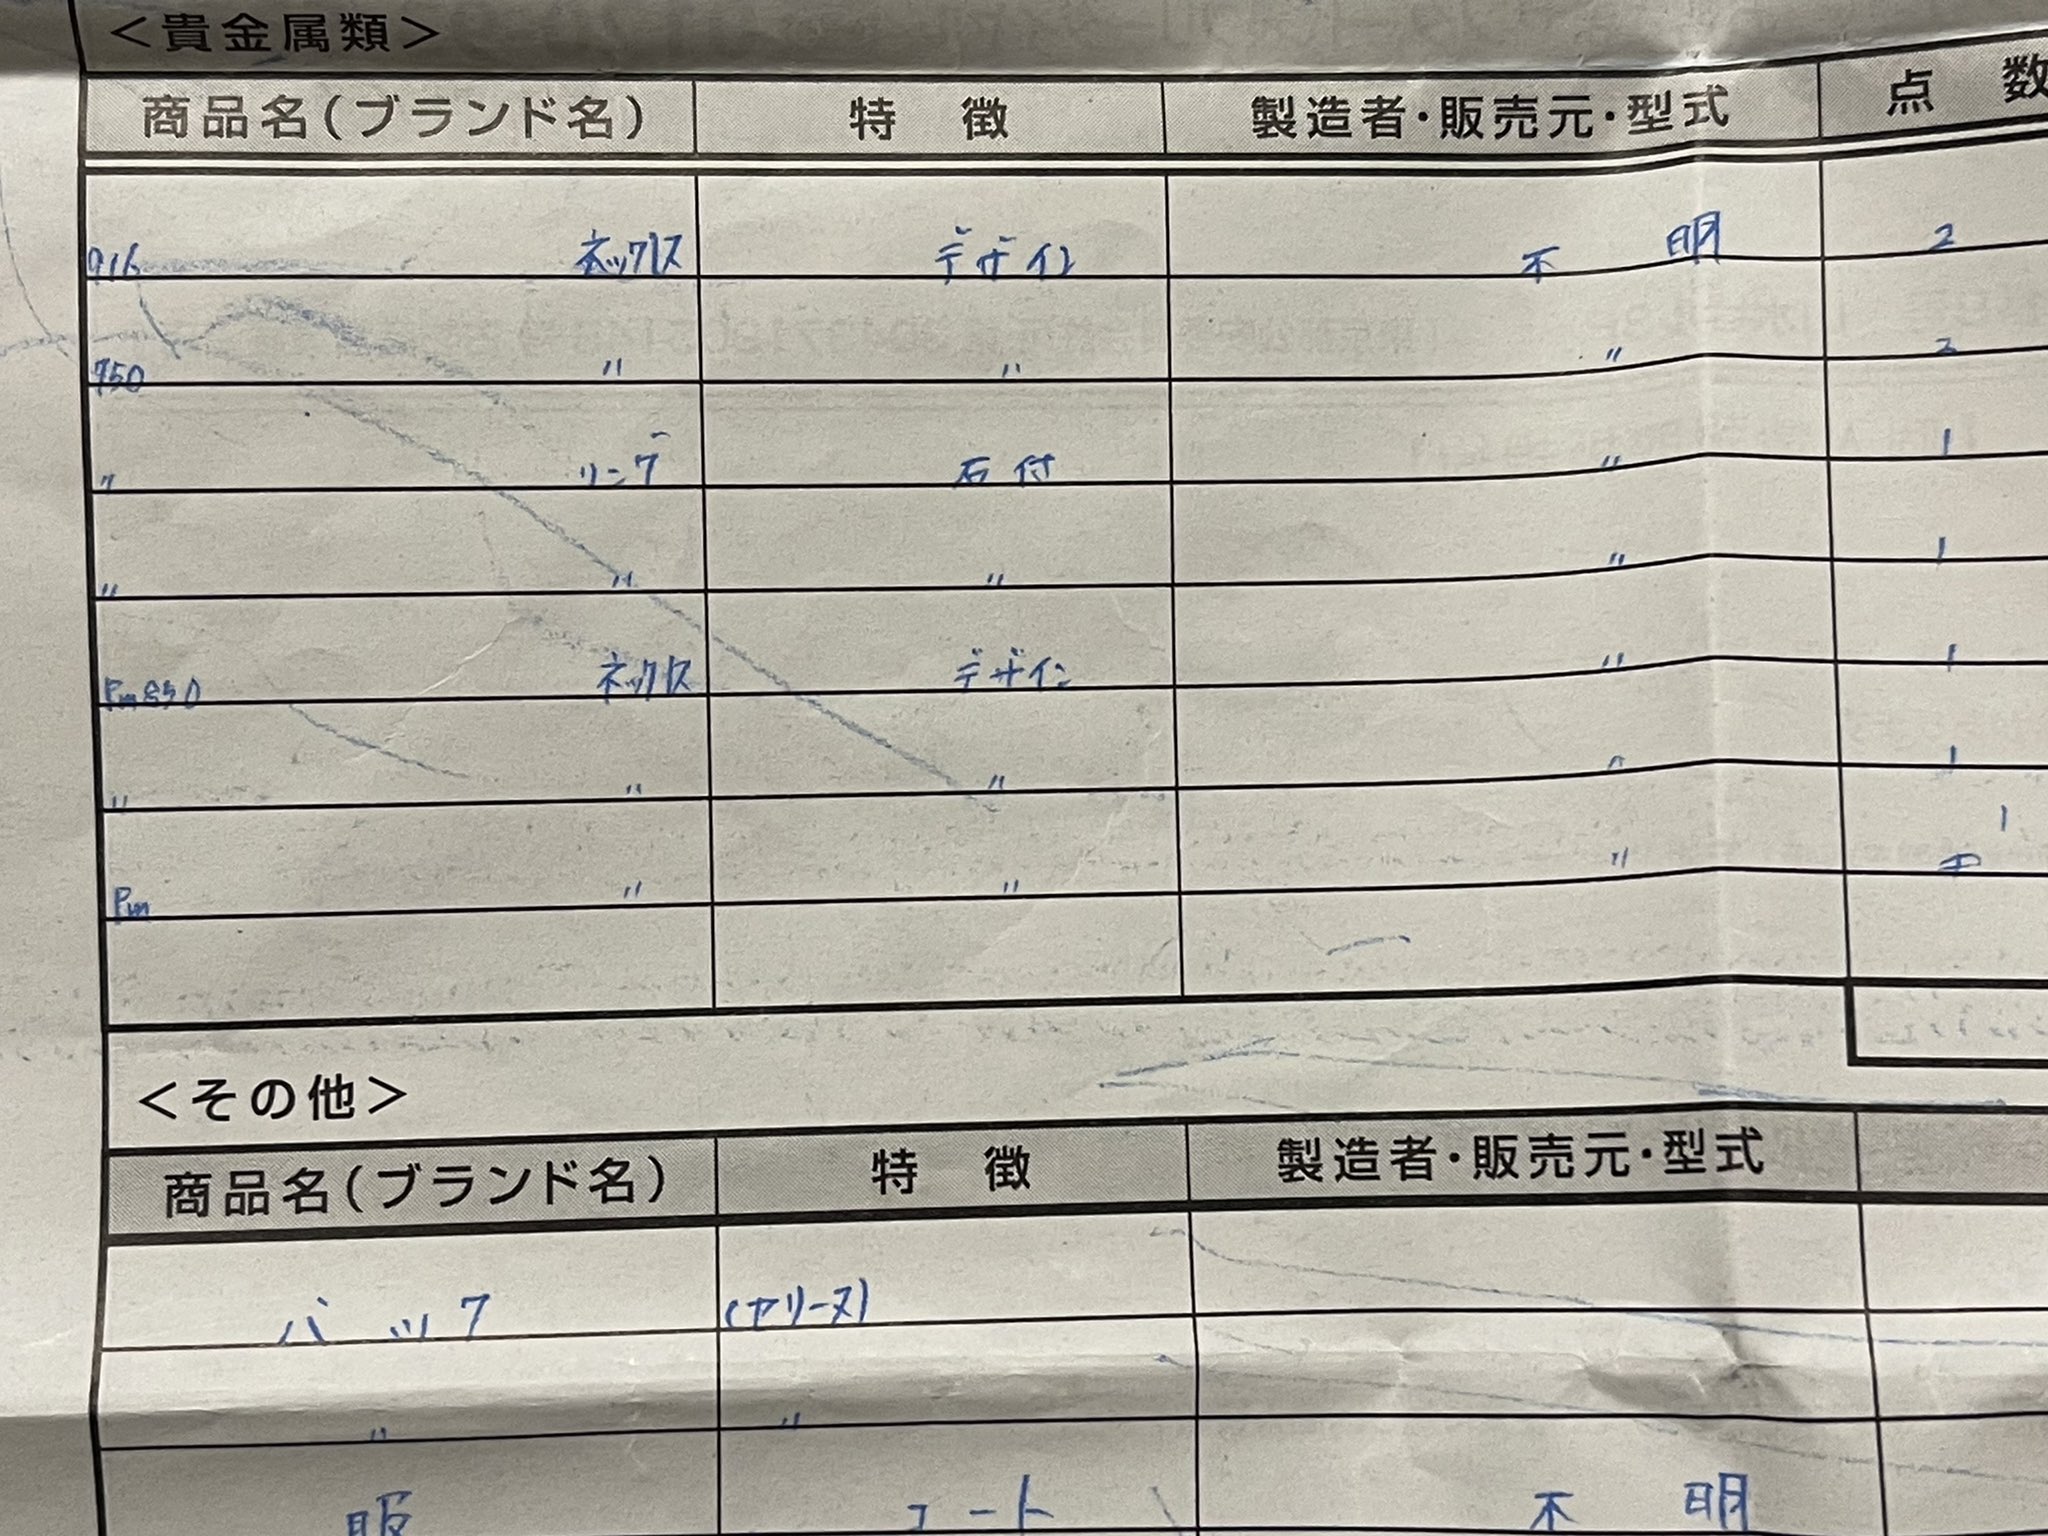 ＜貴金属類＞
商品名(ブランド名) 特 徴 製造者・販売元・型式 点 数
916 ネックレス デザイン 不 明 2
750 〃 〃 〃 2
〃 リング 石付 〃 1
〃 〃 〃 〃 1
Pm850 ネックレス デザイン 〃 1
〃 〃 〃 〃 1
1
Pm 〃 〃 〃
＜その他＞
商品名(ブランド名) 特 徴 製造者・販売元・型式
バッグ (セリーヌ)
〃 〃
服 コート 不 明